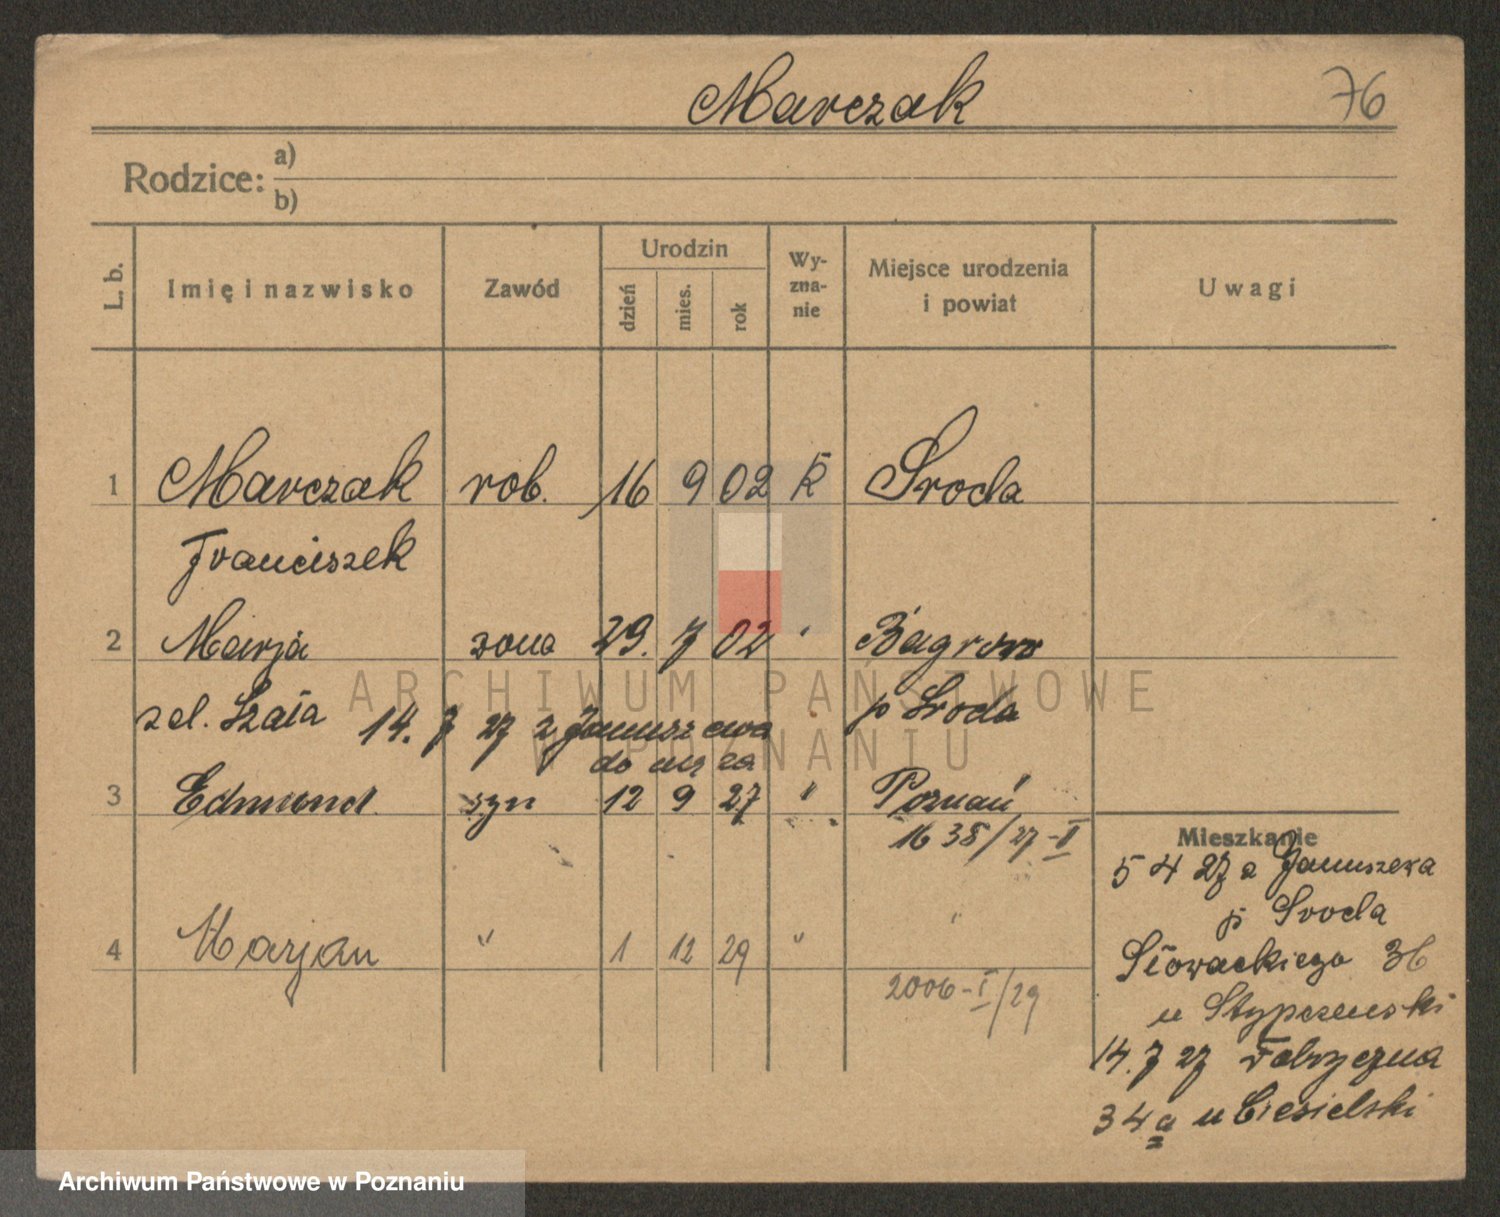 Marczak 76
Rodzice: a)
b)
L. b. Imię i nazwisko Zawód Urodzin dzień mies. rok Wy-zna-nie Miejsce urodzenia i powiat Uwagi
1 Marczak rob. 16 9 02 k Sroda
Franciszek
2 Marja zona 29. 7 02 " Bagrowo
zel. Szała p Sroda
14. 7 27 z Januszewa
do męża
3 Edmund syn 12 9 27 " Poznań
1638/27-II
Mieszkanie
5 4 27 z Januszewa
p Sroda
4 Marjan " 1 12 29 " "
Słowackiego 36
2006-I/29
u Stypczewski
14. 7 27 Fabryczna
34a u Ciesielski
ARCHIWUM PAŃSTWOWE
W POZNANIU
Archiwum Państwowe w Poznaniu